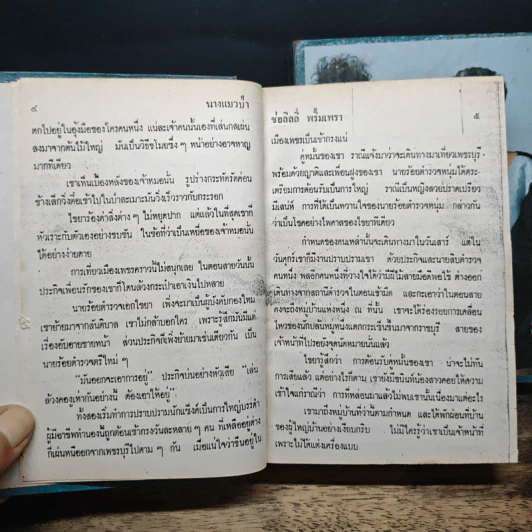 ๔ นางแมวป่า
ตกไปอยู่ในอุ้งมือของใครคนหนึ่ง แน่ละเจ้าคนนั้นเองที่เล่นกลผ่น
ลงมาจากต้นไม้ใหญ่ มันเป็นวิธีขโมยซึ่ง ๆ หน้าอย่างอาจหาญ
มากทีเดียว
เขาเห็นเบื้องหลังของเจ้าหมอนั่น รูปร่างกะทัดรัดค่อน
ข้างเล็กวิ่งตื๋อเข้าไปในป่าละเมาะมันวิ่งเร็วราวกับกระรอก
ไชยาร้องด่าลั่งต่าง ๆ ไม่หยุดปาก แต่แล้วในที่สุดเขาก็
หัวเราะกับตัวเองอย่างขบขัน ในข้อที่ว่าเป็นเหยื่อของเจ้าหมอนั่น
ได้อย่างง่ายดาย
การเที่ยวเมืองเพชรคราวนี้ไม่สนุกเลย ในตอนสายวันนั้น
ประกิจเพื่อนรักของเขาก็โดนล้วงกระเป๋าเอาเงินไปหลาย
นายร้อยตำรวจเอกไชยา เพิ่งจะมาเป็นผู้บังคับกองใหม่
เขาย้ายมาจากสันติบาล เขาไม่กล้าบอกใคร เพราะรู้สึกมันมีแต่
เรื่องอับอายขายหน้า ส่วนประกิจก็เพิ่งย้ายมาเช่นเดียวกัน เป็น
นายร้อยตำรวจตรีใหม่ ๆ
"มันออกจะเอาการอยู่" ประกิจบ่นอย่างหัวเสีย "เล่น
ล้วงคองูเห่ากันอย่างนี้ ต้องเอาให้อยู่"
ทั้งสองเริ่มทำการปราบปรามนักแซ็งค์เป็นการใหญ่บรรดา
ผู้มีอาชีพทำนองนี้ถูกต้อนเข้ากรงวันละหลาย ๆ คน ที่เหลืออยู่ต่าง
ก็เผ่นหนีออกจากเพชรบุรีไปตาม ๆ กัน เมื่อแน่ใจว่าขืนอยู่ใน
ช่อลิลลี่ พริ้มเพรา ๕
เมืองเพชรเป็นเข้ากรงแน่
คู่หมั้นของเขา รานีแจ้งมาว่าจะเดินทางมาเที่ยวเพชรบุรี
พร้อมด้วยญาติและเพื่อนฝูงของเขา นายร้อยตำรวจหนุ่มได้ตระ
เตรียมการต้อนรับเป็นการใหญ่ รานีเป็นหญิงสวยปราดเปรียว
มีเสน่ห์ การที่ได้เป็นหวานใจของนายร้อยตำรวจหนุ่ม กล่าวกัน
ว่าเป็นโชคอย่างไพศาลของไชยาทีเดียว
กำหนดของคนเหล่านั้นจะเดินทางมาในวันเสาร์ แต่ใน
วันศุกร์เขาก็มีงานปราบปรามเข้า ด้วยประกิจและนายสิบตำรวจ
คนหนึ่ง พลอกคนหนึ่งที่วางใจได้ว่ามีฝีไม้ลายมือดีพอใช้ ต่างออก
เดินทางจากสถานีตำรวจในตอนเช้ามืด และกะเอาว่าในตอนสาย
คงจะถึงหมู่บ้านแห่งหนึ่ง ณ ที่นั้น เขาจะได้ร่องรอยการเคลื่อน
ไหวของนักปล้นหมู่หนึ่งแตกกระเซ็นขึ้นมาจากราชบุรี สายของ
เจ้าหน้าที่ไปรออยู่จุดนัดหมายนั้นแล้ว
ไชยารู้สึกว่า การต้อนรับคู่หมั้นของเขา น่าจะไม่ทัน
การเสียแล้ว แต่อย่างไรก็ตาม เขายังมีชนินทิ์น้องสาวคอยให้ความ
เข้าใจแก่รานีว่า การที่หล่อนมาแล้วไม่พบเขานั้นเนื่องมาแต่อะไร
เขามาถึงหมู่บ้านที่ว่านี้ตามกำหนด และได้พักผ่อนที่บ้าน
ของผู้ใหญ่บ้านอย่างเงียบกริบ ไม่มีใครรู้ว่าเขาเป็นเจ้าหน้าที่
เพราะไม่ได้แต่งเครื่องแบบ